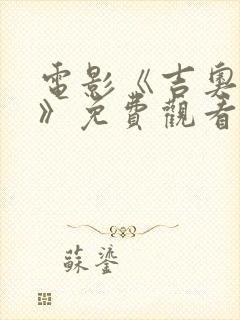 電影《吉奧
》免費觀看
蘇鎏